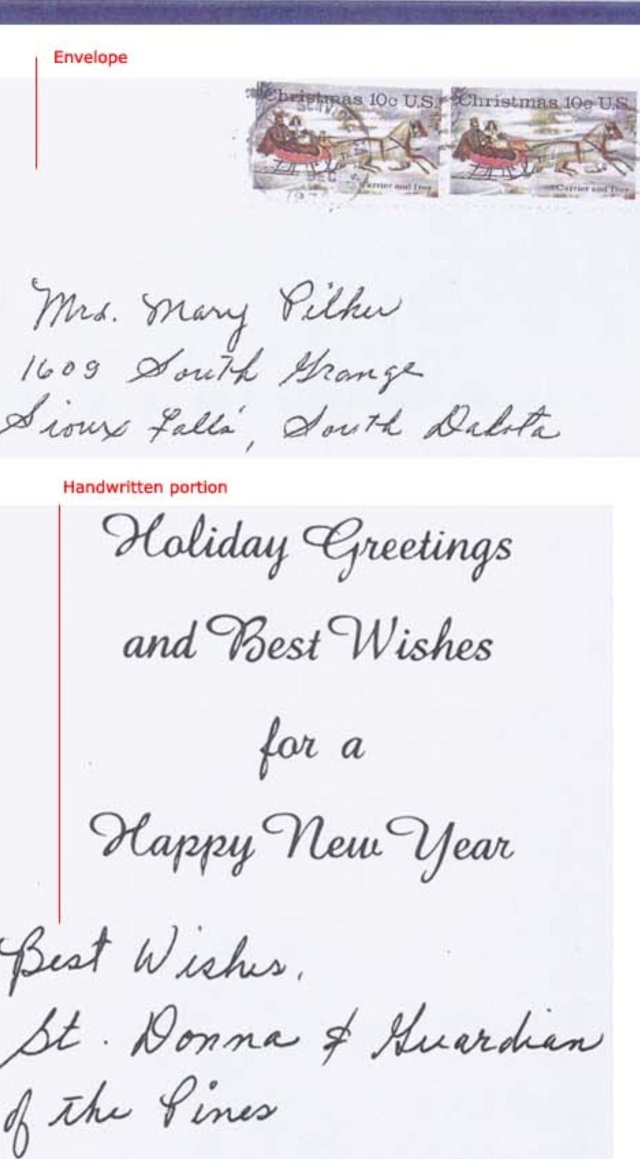 Envelope
Christmas 10c U.S. Christmas 10c U.S.
Currier and Ives Currier and Ives
Mrs. Mary Pilker
1609 South Grange
Sioux Falls, South Dakota
Handwritten portion
Holiday Greetings
and Best Wishes
for a
Happy New Year
Best Wishes,
St. Donna & Guardian
of the Pines